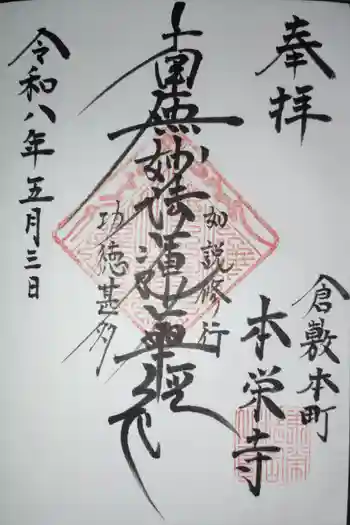 奉拝
倉敷本町
本栄寺
如説修行
南無妙法蓮華経
功徳甚多
令和八年五月三日